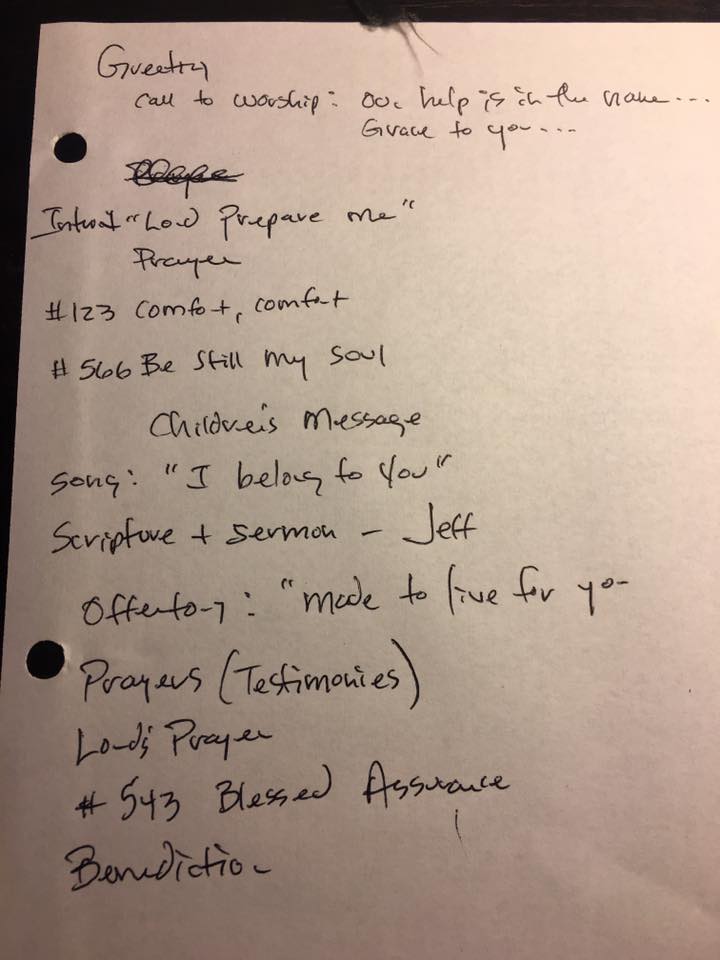 Greeting
Call to worship: Our help is in the name...
Grace to you...
Prayer
Introit "Lord Prepare me"
Prayer
#123 Comfort, comfort
#566 Be Still my soul
Children's Message
Song: "I belong to You"
Scripture + Sermon - Jeff
Offertory: "made to live for you
Prayers (Testimonies)
Lord's Prayer
#543 Blessed Assurance
Benediction